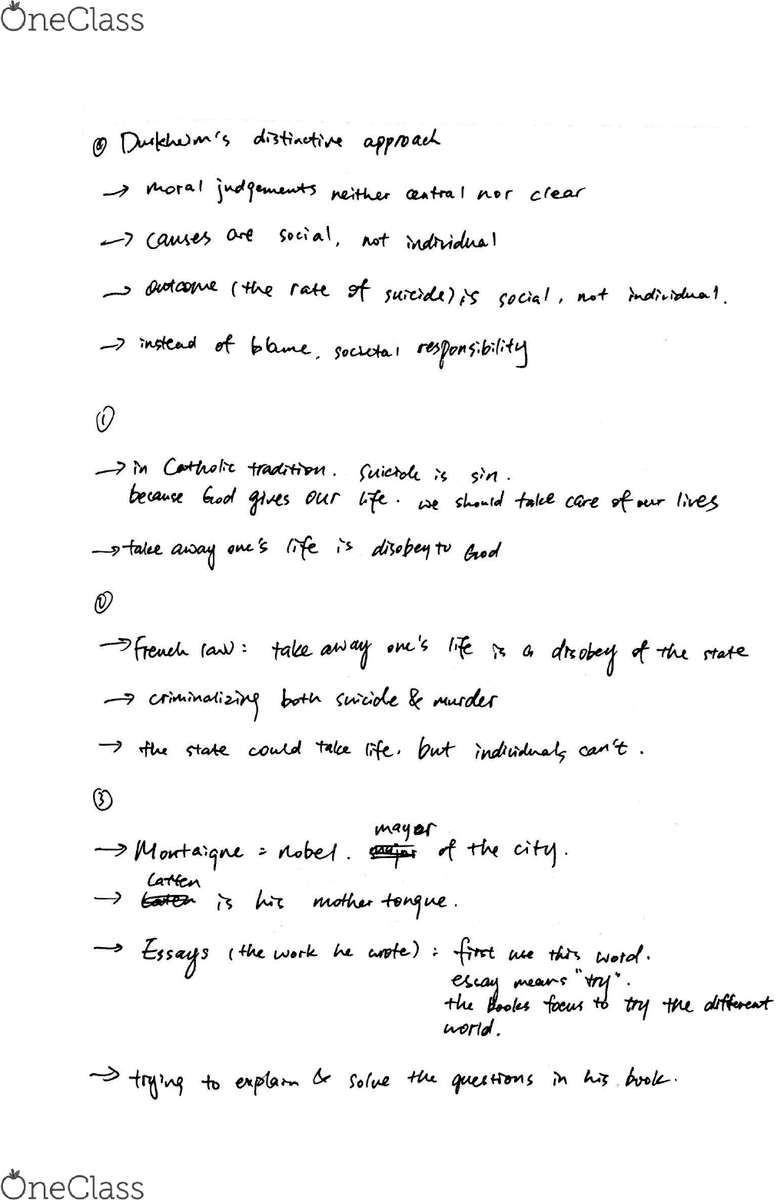 OneClass
⑧ Durkheim's distinctive approach
→ moral judgements neither central nor clear
→ causes are social, not individual
→ outcome (the rate of suicide) is social, not individual.
→ instead of blame, societal responsibility
①
→ in Catholic tradition. suicide is sin.
because God gives our life. we should take care of our lives
→ take away one's life is disobey to God
②
→ French law: take away one's life is a disobey of the state
→ criminalizing both suicide & murder
→ the state could take life, but individuals can't.
③
→ Montaigne = nobel. mayor of the city.
→ Latten is his mother tongue.
→ Essays (the work he wrote): first use this word.
essay means "try".
the books focus to try the different
world.
→ trying to explain & solve the questions in his book.
OneClass